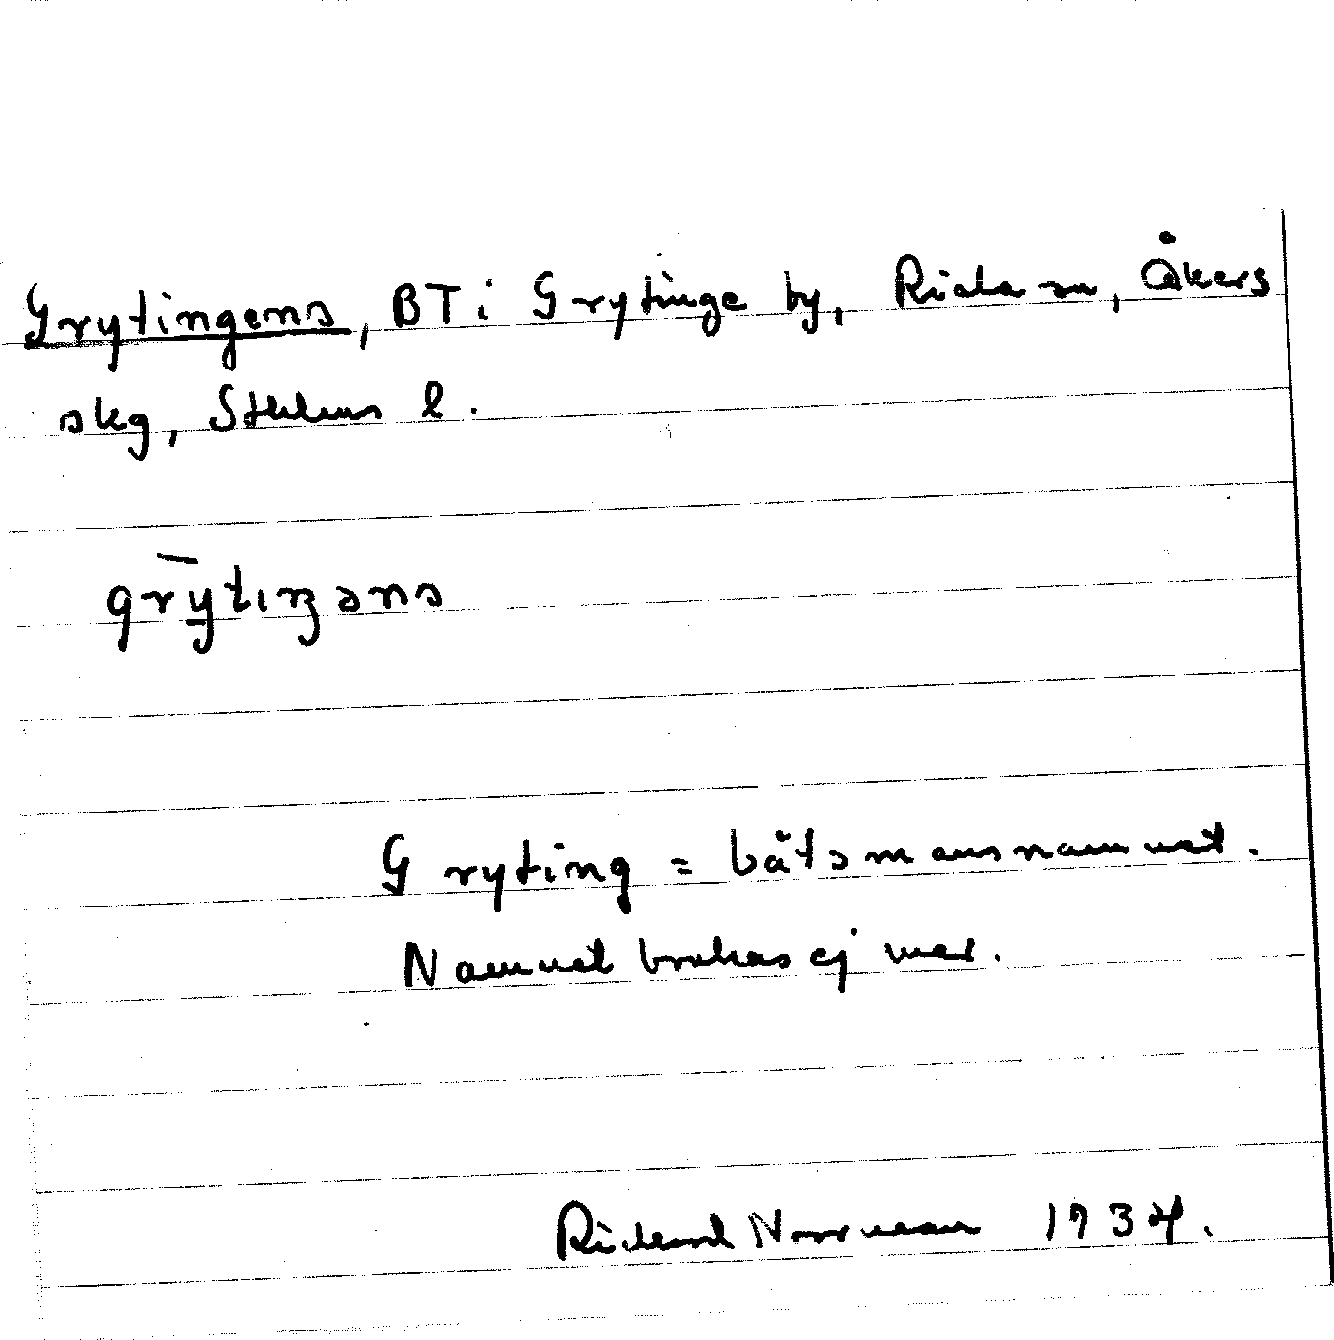 Grytingens, BT i Grytinge by, Riala sn, Åkers
skg, Sthlms l.
grȳtıŋəns
Gryting = båtsmansnamnet.
Namnet brukas ej mer.
Richard Norrman 1934.